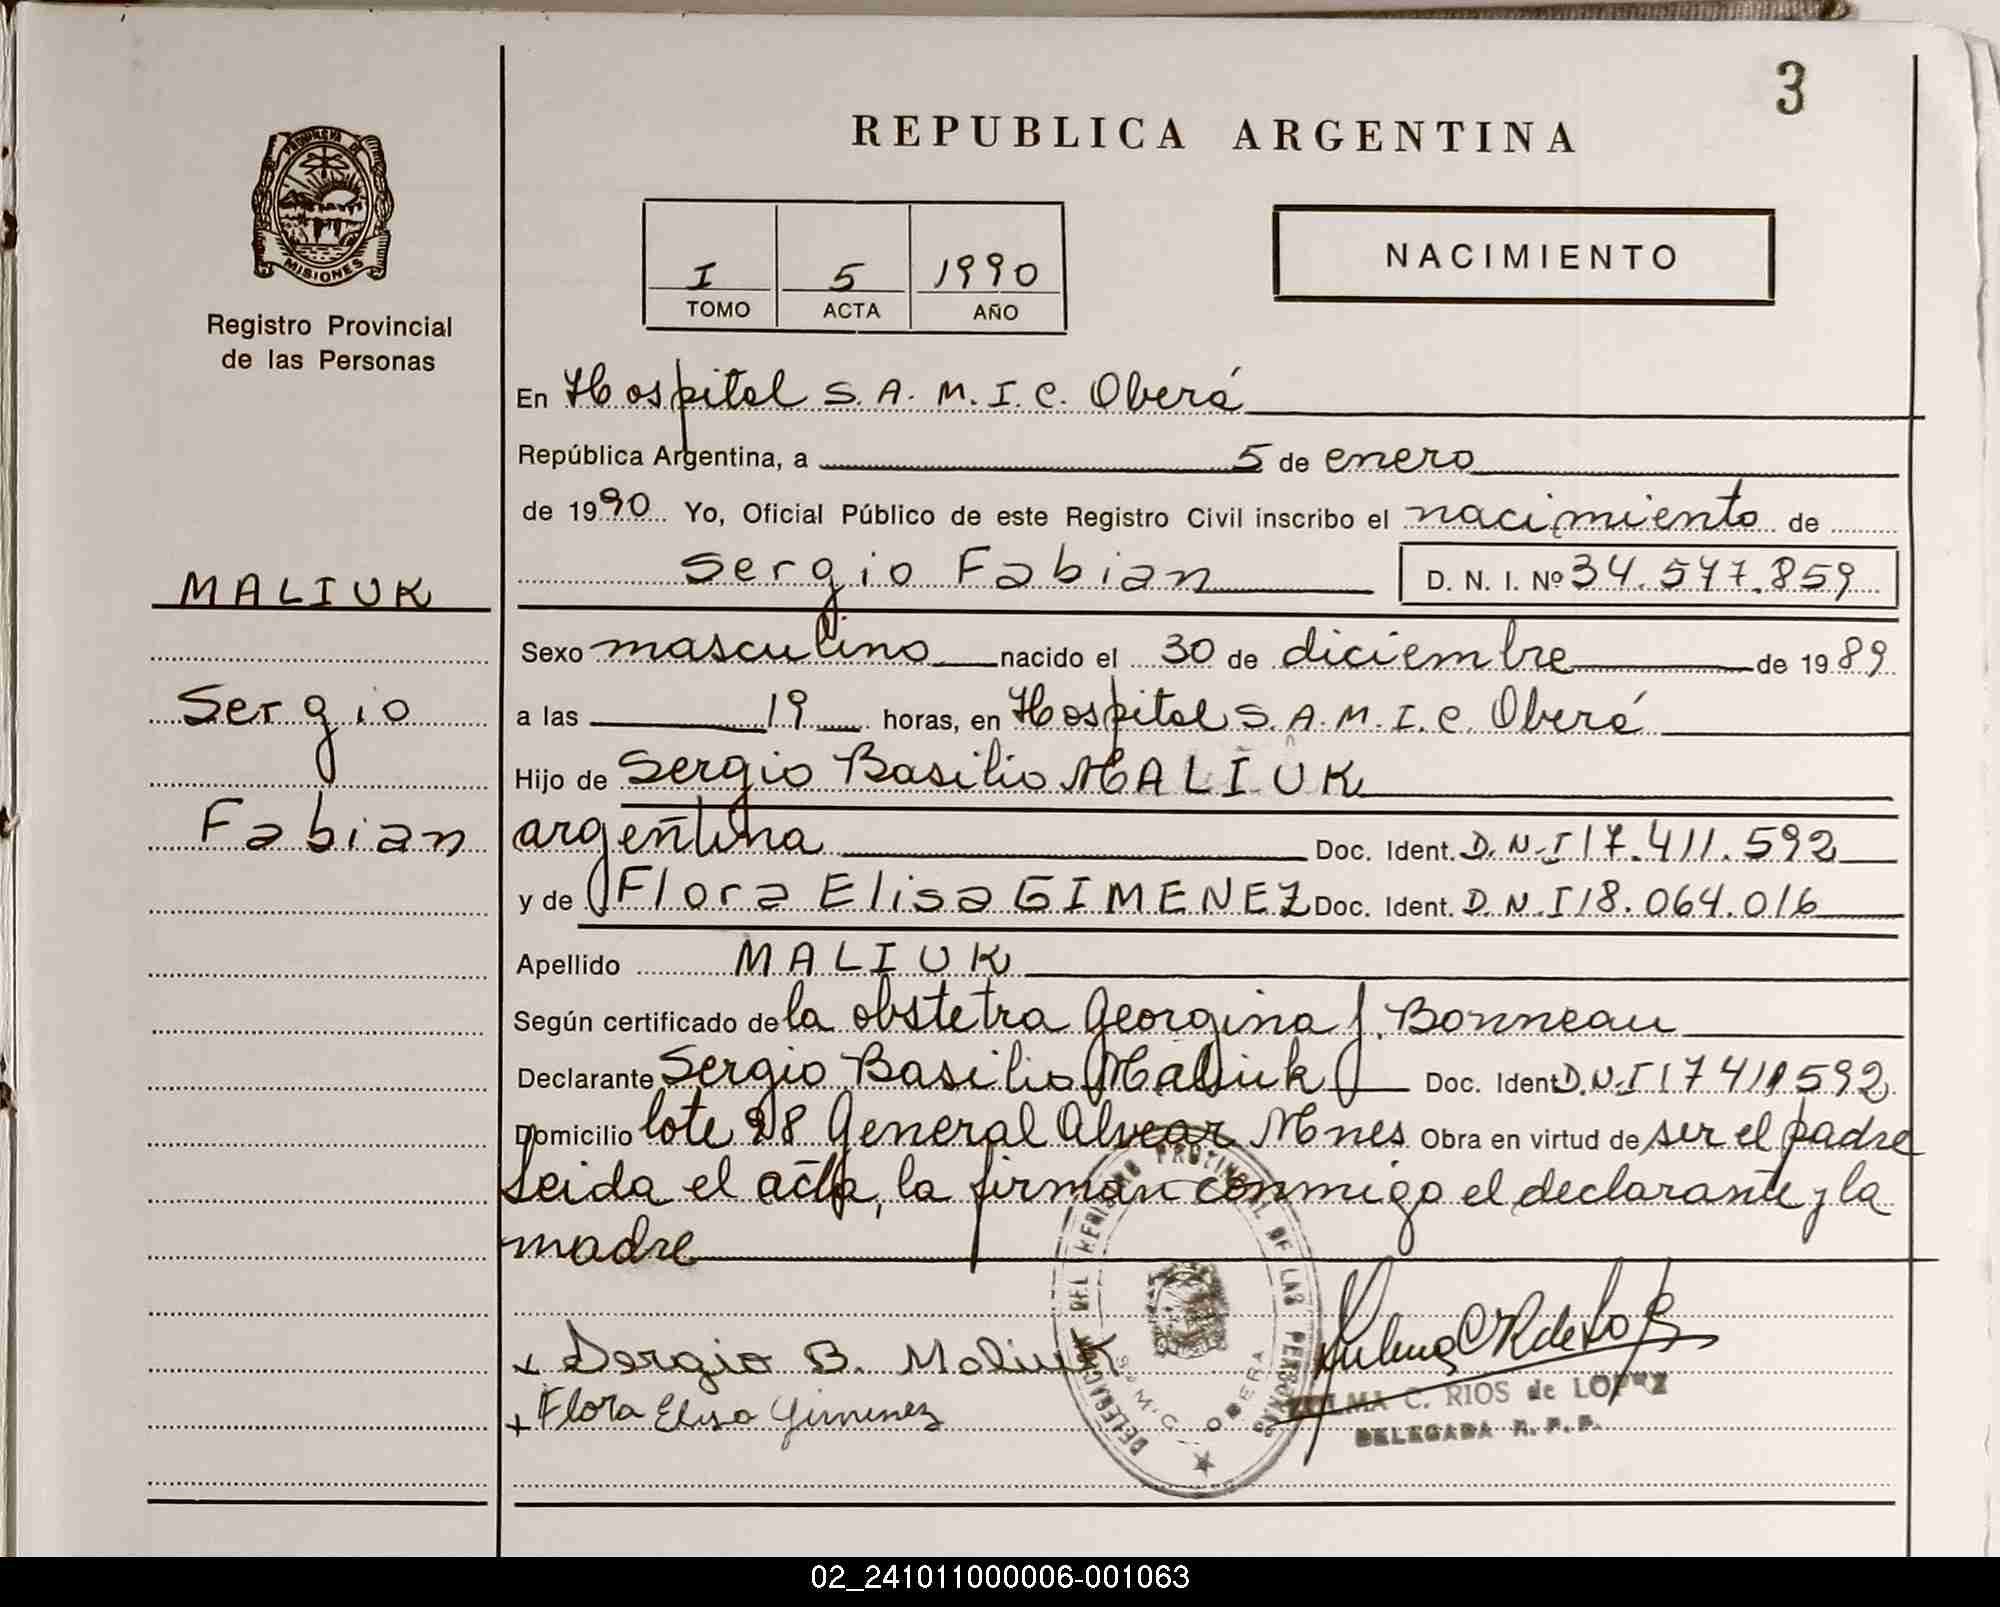 3
REPUBLICA ARGENTINA
PROVINCIA DE
MISIONES
Registro Provincial
de las Personas
I 5 1990
TOMO ACTA AÑO
NACIMIENTO
En Hospital S.A.M.I.C. Oberá
República Argentina, a 5 de enero
de 1990 Yo, Oficial Público de este Registro Civil inscribo el nacimiento de
Sergio Fabian D. N. I. Nº 34.547.859
MALIUK
Sergio
Fabian
Sexo masculino nacido el 30 de diciembre de 1989
a las 19 horas, en Hospital S.A.M.I.C. Oberá
Hijo de Sergio Basilio MALIUK
argentina Doc. Ident. D.N.I 17.411.592
y de Flora Elisa GIMENEZ Doc. Ident. D.N.I 18.064.016
Apellido MALIUK
Según certificado de la obstetra Georgina J. Bonneau
Declarante Sergio Basilio Maliuk Doc. Ident D.N.I 17411592
Domicilio lote 28 General Alvear Mnes Obra en virtud de ser el padre
Leida el acta, la firman conmigo el declarante y la
madre
DELEGACION DEL REGISTRO PROVINCIAL DE LAS PERSONAS
S.A.M.C. OBERA
+ Sergio B. Maliuk
+ Flora Elisa Gimenez
ZULMA C. RIOS de LOPEZ
DELEGADA R.P.P.
02_241011000006-001063